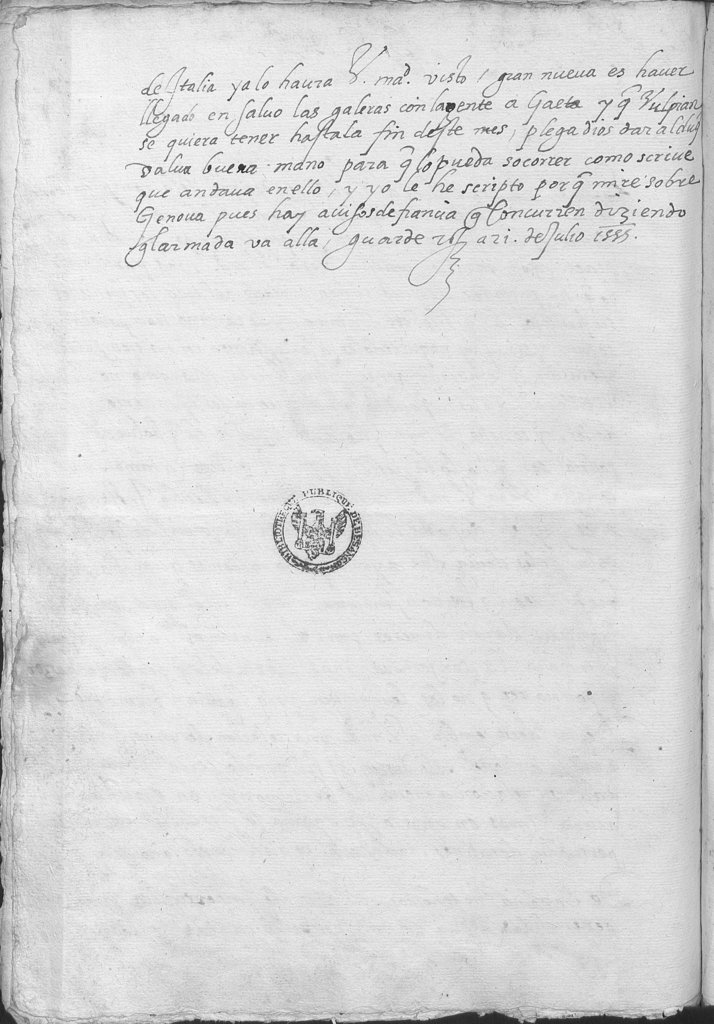 de Italia ya lo haura V. mad. visto, gran nueva es haver
llegado en salvo las galeras con la gente a Gaeta y q Vulpian
se quiera tener hasta la fin deste mes, plega a dios dar al duq
dalva buena mano para q lo pueda socorrer como scrive
que andava en ello, y yo le he scripto porq mire sobre
Genova pues hay avisos de francia q concurren diziendo
q larmada va alla, guarde a 21. de Julio 1555.
BIBLIOTHEQUE PUBLIQUE DE BESANCON